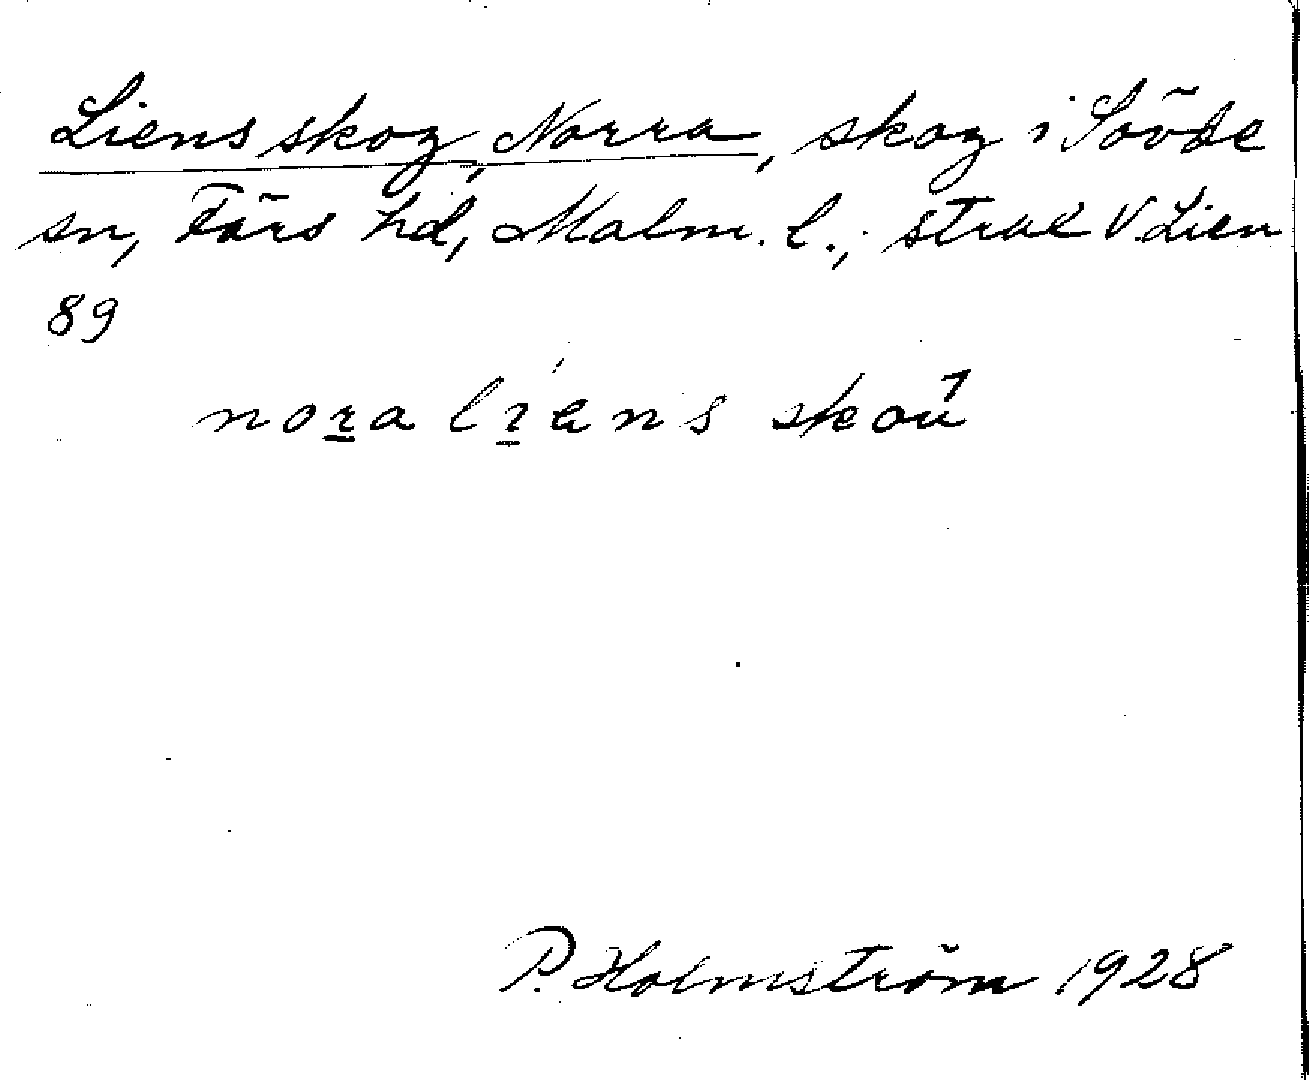 Liens skog, Norra, skog i Sövde
sn, Färs hd, Malm. l., strax V. Lien
89
nora liens skoú
P. Holmström 1928